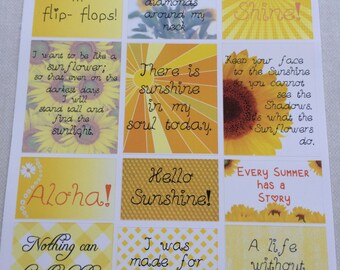 flip-flops!
diamonds
around my
neck
Shine!
I want to be like a
sunflower;
so that even on the
darkest day
I will
stand tall and
find the
sunlight.
There is
sunshine
in my
soul today.
Keep your face
to the Sunshine
you cannot
see the
Shadows.
It's what the
Sunflowers
do.
Aloha!
Hello
Sunshine!
Every Summer
has a
Story
Nothing can
I was
made for
A life
without